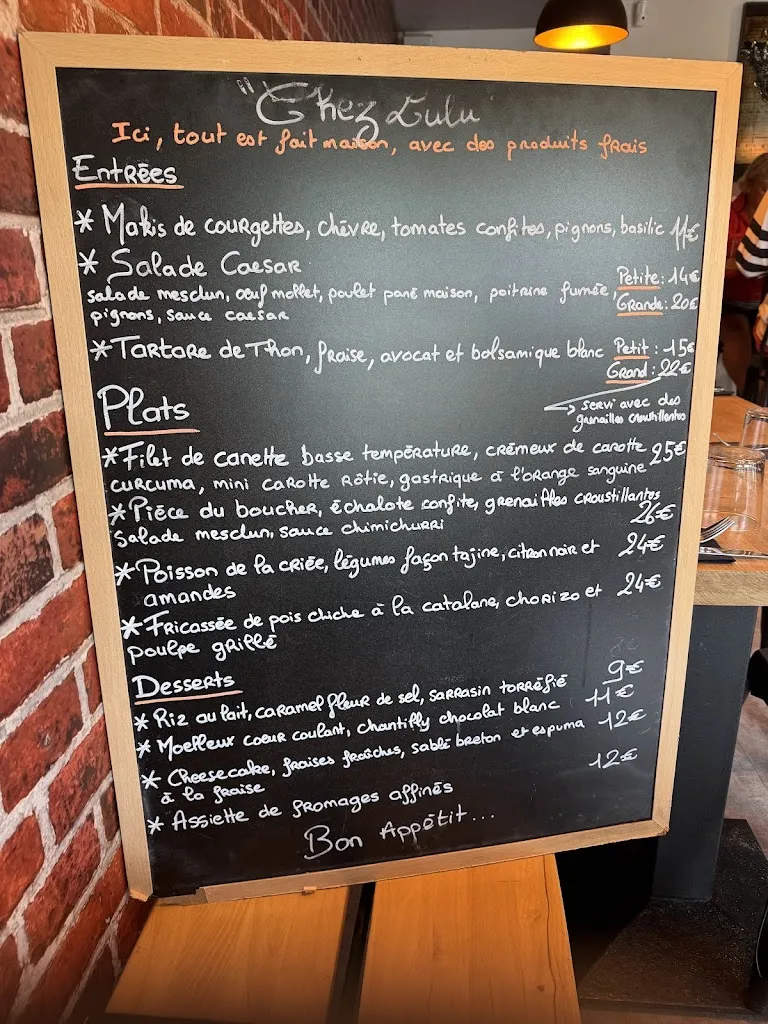 "Chez Lulu"
Ici, tout est fait maison, avec des produits frais
Entrées
* Makis de courgettes, chèvre, tomates confites, pignons, basilic 11€
* Salade Caesar
salade mesclun, oeuf mollet, poulet pané maison, poitrine fumée,
pignons, sauce caesar
Petite : 14€
Grande : 20€
* Tartare de Thon, fraise, avocat et balsamique blanc
Petit : 15€
Grand : 22€
servi avec des
grenailles croustillantes
Plats
* Filet de canette basse température, crémeux de carotte 25€
curcuma, mini carotte rôtie, gastrique à l'orange sanguine
* Pièce du boucher, échalote confite, grenailles croustillantes
Salade mesclun, sauce chimichurri 26€
* Poisson de la criée, légumes façon tajine, citron noir et 24€
amandes
* Fricassée de pois chiche à la catalane, chorizo et 24€
poulpe grillé
Desserts
* Riz au lait, caramel fleur de sel, sarrasin torréfié 9€
* Moelleux coeur coulant, chantilly chocolat blanc 11€
* Cheesecake, fraises fraîches, sablé breton et espuma 12€
à la fraise
* Assiette de fromages affinés 12€
Bon Appétit...